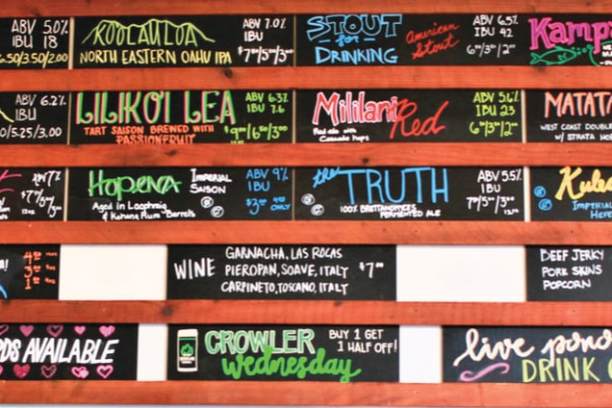 ABV 5.0%
IBU 18
6.50/3.50/2.00
NORTH EASTERN OAHU IPA
ABV 7.0%
IBU
$7/5/3
STOUT
for
DRINKING
American
Stout
ABV 6.5%
IBU 42
6/3/2
Kamp
ABV 6.2%
0/5.25/3.00
LILIKOI LEA
TART SAISON BREWED WITH
PASSIONFRUIT
ABV 6.3%
IBU 7.6
Mililani Red
Red ale with
Cascade hops
ABV 5.6%
IBU 23
6/3/2
MATATA
WEST COAST DOUBLE
W/ STRATA HO
Hopena
IMPERIAL
SAISON
Aged in Laophraig
& Kohana Rum Barrels
ABV 9%
IBU
ONLY
the TRUTH
100% BRETTANOMYCES
FERMENTED ALE
ABV 5.5%
IBU
IMPERIAL
HEFE
WINE
GARNACHA, LAS ROCAS
PIEROPAN, SOAVE, ITALY
CARPINETO, TOSCANO, ITALY
$7
BEEF JERKY
PORK SKINS
POPCORN
DS AVAILABLE
CROWLER
Wednesday
BUY 1 GET
1 HALF OFF!
live pono
DRINK